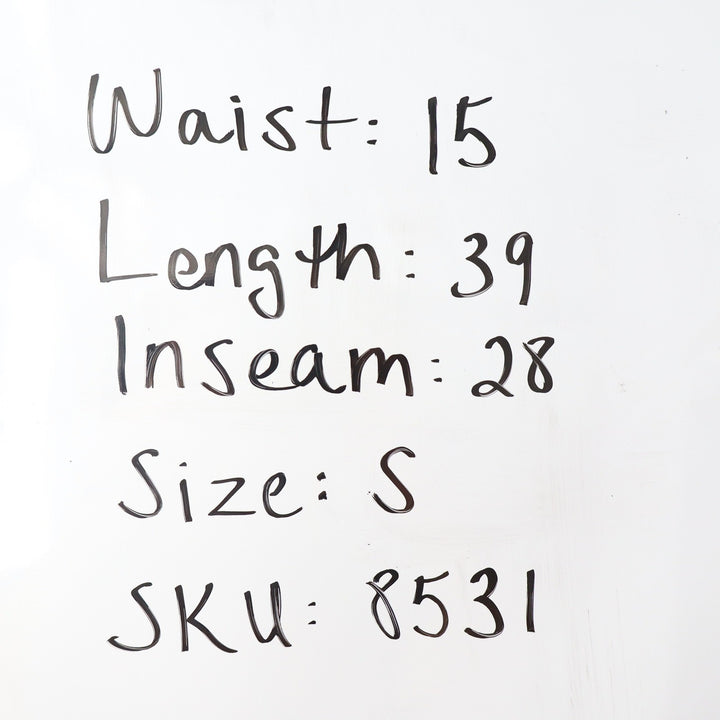 Waist: 15
Length: 39
Inseam: 28
Size: S
SKU: 8531